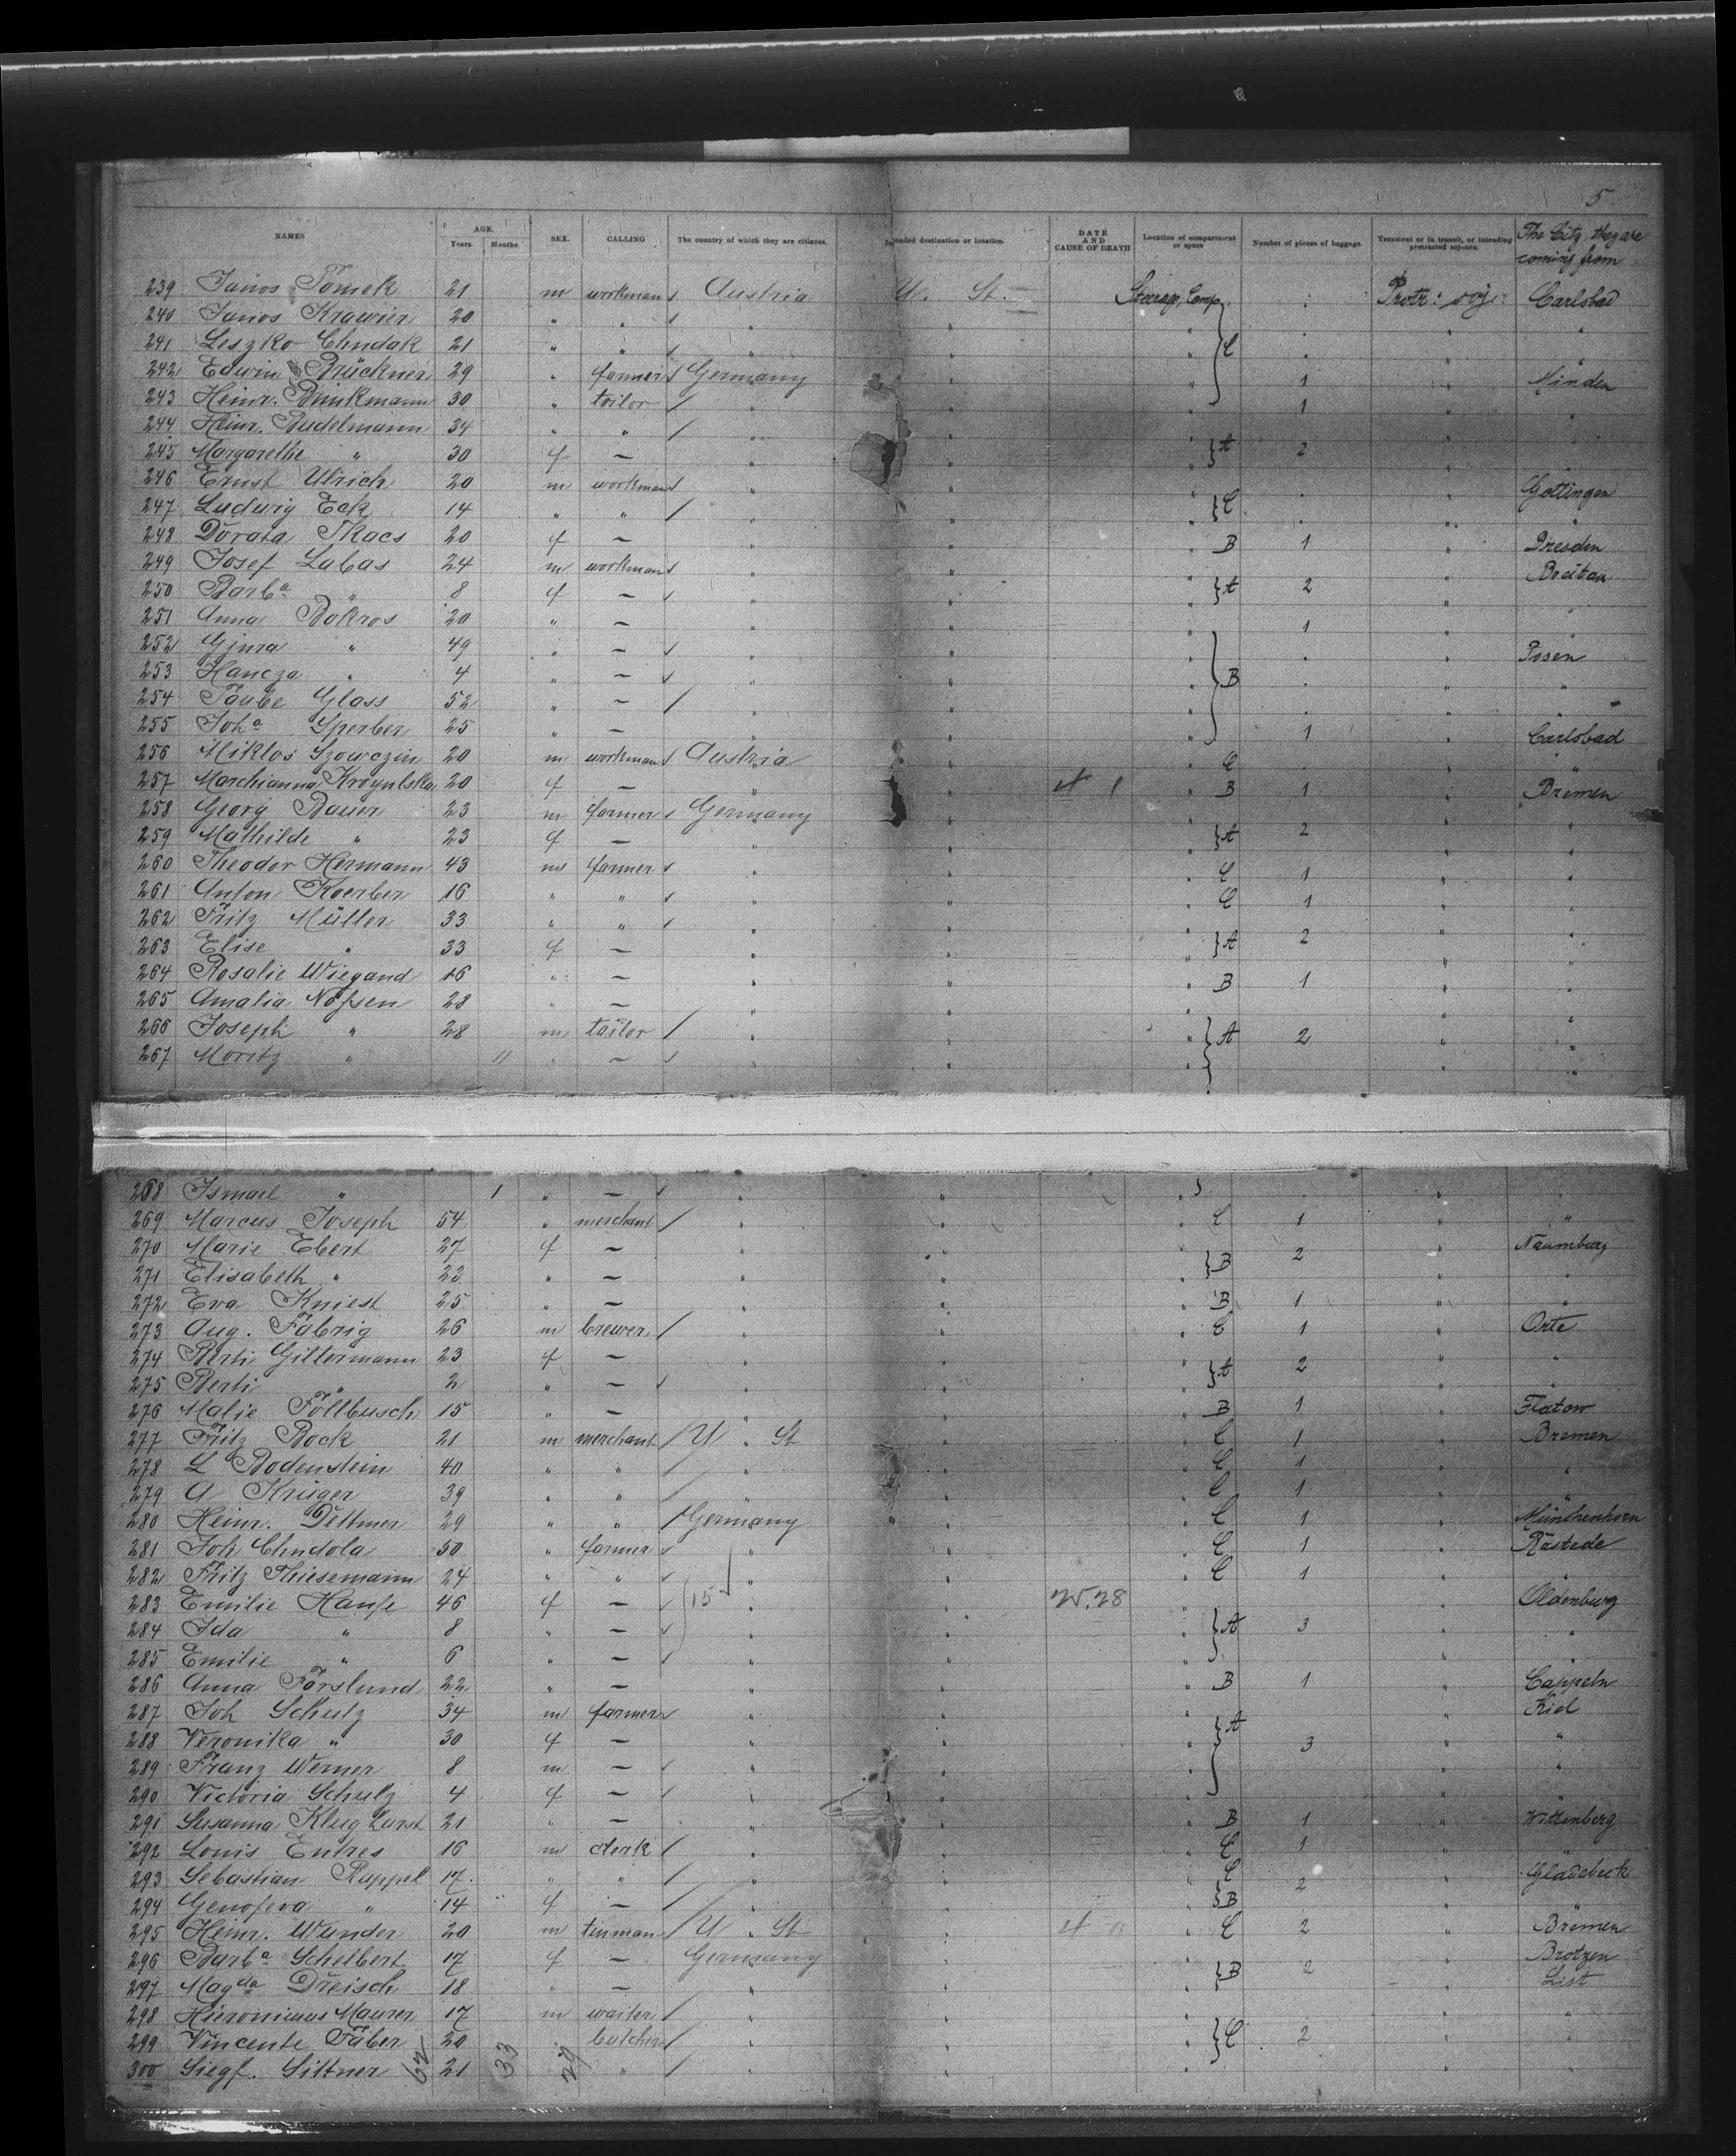 5
NAMES AGE. Years. Months. SEX. CALLING The country of which they are citizens. Intended destination or location. DATE AND CAUSE OF DEATH Location of compartment or space Number of pieces of baggage. Transient or in transit, or intending protracted sojourn. The City they are coming from
239 Janos Tomek 21 m workman Austria U. St. Steerage Comp. Protr: soj: Carlsbad
240 Janos Krawier 20 " " " " " " "
241 Leszko Chudak 21 " " " " " C " "
242 Edwin Brückner 29 " farmer Germany " " 1 " Minden
243 Heinr. Brinkmann 30 " tailor " " " 1 " "
244 Heinr. Budelmann 34 " " " " " "
245 Margarethe " 30 f — " " " A 2 " "
246 Ernst Ulrich 20 m workman " " " " Gottingen
247 Ludwig Eck 14 " " " " " C " "
248 Dorata Tkacs 20 f — " " " B 1 " Dresden
249 Josef Labas 24 m workman " " " "
250 Barbª " 8 f — " " " A 2 " "
251 Anna Bokros 20 " — " " " 1 " "
252 Gjura " 49 " — " " " " Posen
253 Hancza " 4 " — " " " B " "
254 Taube Glass 52 " — " " " " "
255 Johª Sperber 25 " — " " " 1 " Carlsbad
256 Miklos Szowczin 20 m workman Austria " " C " "
257 Marchianna 20 f — " " " B 1 " Bremen
258 Georg Bauer 23 m farmer Germany " " " "
259 Mathilde " 23 f — " " " A 2 " "
260 Theodor Hermann 43 m farmer " " " C 1 " "
261 Anton Koerber 16 " " " " " C 1 " "
262 Fritz Müller 33 " " " " " " "
263 Elise " 33 f — " " " A 2 " "
264 Rosalie Wiegand 16 " — " " " B 1 " "
265 Amalia Nossen 28 " — " " " "
266 Joseph " 28 m tailor " " " A 2 " "
267 Moritz " 11 " — " " " "
268 Ismael " 1 " — " " " " "
269 Marcus Joseph 54 " merchant " " " C 1 " "
270 Marie Ebert 27 f — " " " B 2 " Naumburg
271 Elisabeth " 23 " — " " " " "
272 Eva Kniest 25 " — " " " B 1 " "
273 Aug. Fabrig 26 m brewer " " " C 1 " Orte
274 Berti Giltermann 23 f — " " " A 2 " "
275 Berti " 2 " — " " " " "
276 Malie Föllbusch 15 " — " " " B 1 " Flatow
277 Fritz Bock 21 m merchant U. St " " C 1 " Bremen
278 L Bodenstein 40 " " " " " C 1 " "
279 A Krüger 39 " " " " " C 1 " "
280 Heinr. Dettmer 29 " " Germany " " C 1 "
281 Joh Chudola 50 " farmer " " " C 1 " Rastede
282 Fritz Thiesemann 24 " " " " " C 1 " "
283 Emilie Hanse 46 f — 15 " " " " Oldenburg
284 Ida " 8 " — " " " A 3 " "
285 Emilie " 6 " — " " " " "
286 Anna Förslund 22 " — " " " B 1 " Cappeln
287 Joh Schulz 34 m farmer " " " " Kiel
288 Veronika " 30 f — " " " A 3 " "
289 Franz Werner 8 m — " " " " "
290 Victoria Schulz 4 f — " " " " "
291 Susanna Klughurst 21 " — " " " B 1 " Wittenberg
292 Louis Entres 16 m clerk " " " C 1 " "
293 Sebastian Ruppel 17 " " " " " C 2 " Gladebeck
294 Genofeva " 14 f — " " " B " "
295 Heinr. Wunder 20 m tinman U. St " " C 2 " Bremen
296 Barbª Schelbert 17 f — Germany " " " Brotzen
297 Magda Dreisch 18 " — " " " B 2 " List
298 Hieronimus Maurer 17 m waiter " " " " "
299 Vincente Faber 20 " butcher " " " C 2 " "
300 Siegf. Sittner 21 " " " " " " "
62 33 29